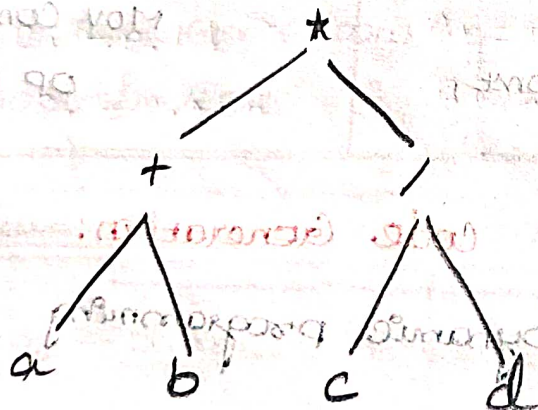 *
+ /
a b c d